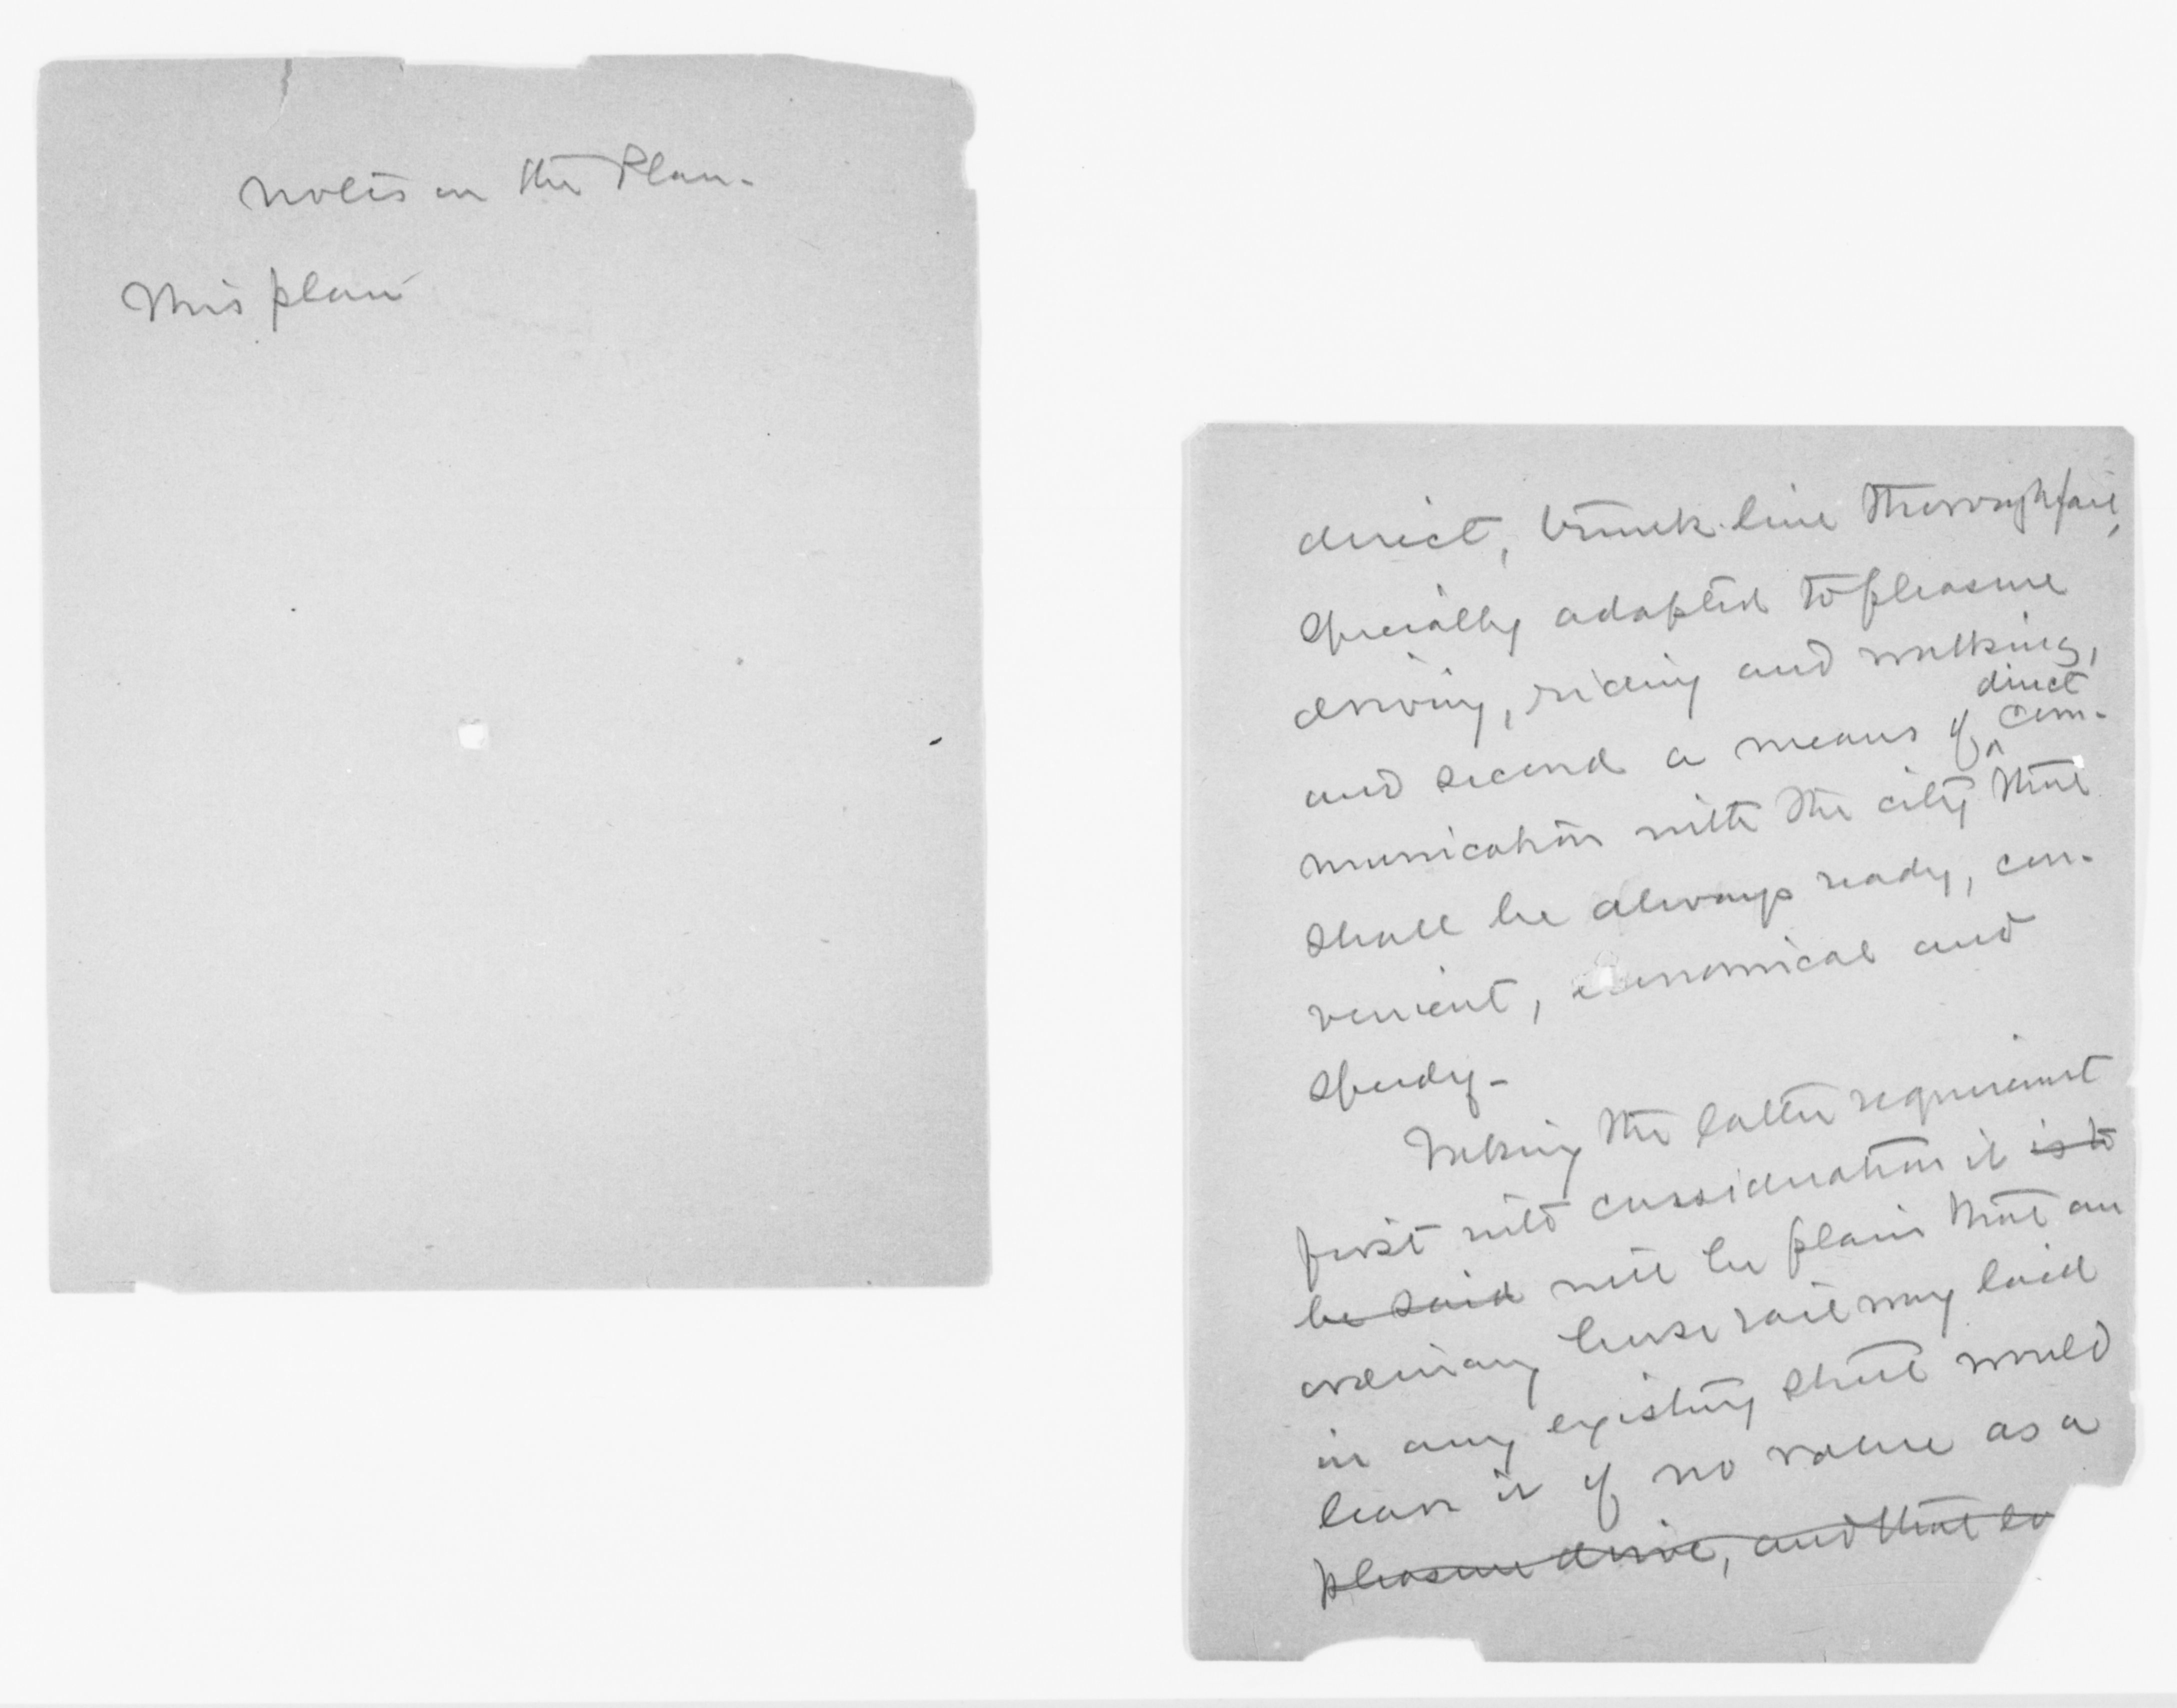 Notes on the Plan.
This plan
direct, trunk-line thoroughfare,
specially adapted to pleasure
driving, riding and walking,
direct
and second a means of com-
munication with the city that
shall be always ready, con-
venient, economical and
speedy-
Taking the latter requirement
first into consideration it is to
be said will be plain that an
ordinary horse railway laid
in any existing street would
leave it of no value as a
pleasure drive, and that